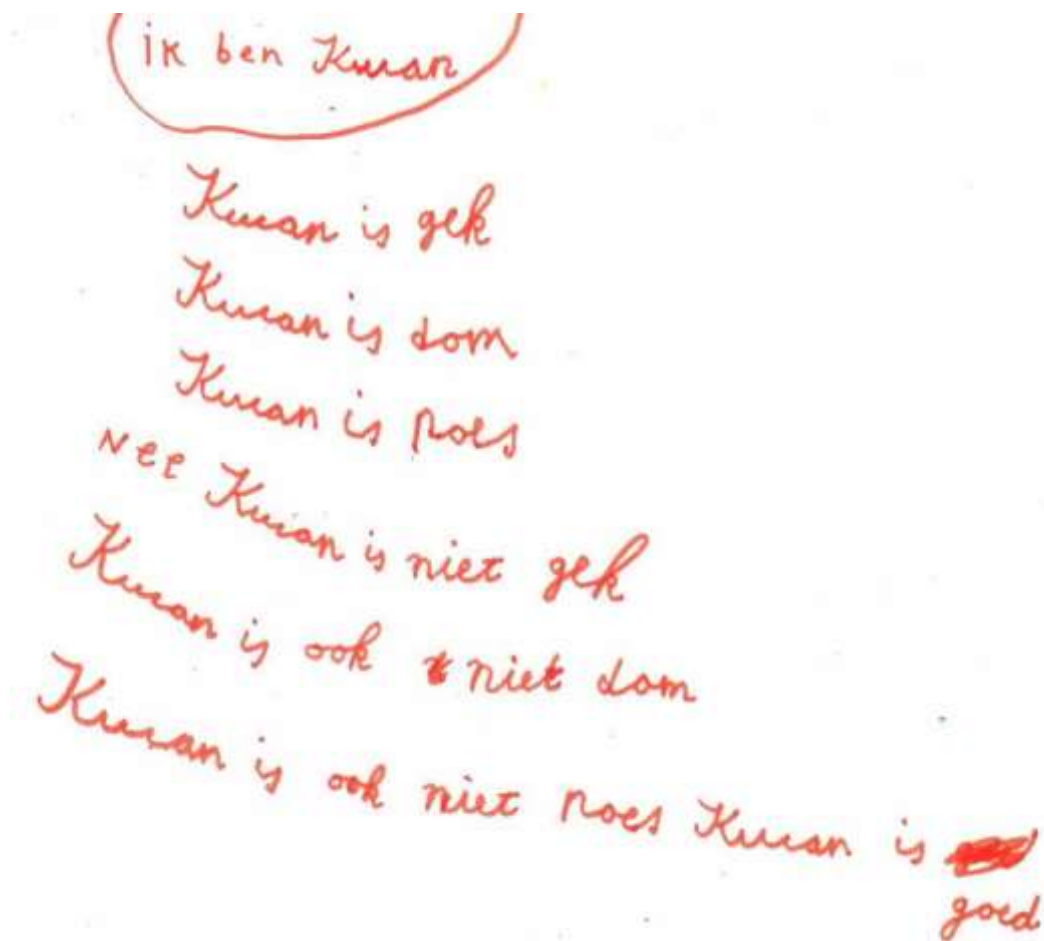 ik ben Kwan
Kwan is gek
Kwan is dom
Kwan is poes
Nee Kwan is niet gek
Kwan is ook niet dom
Kwan is ook niet poes Kwan is
goed